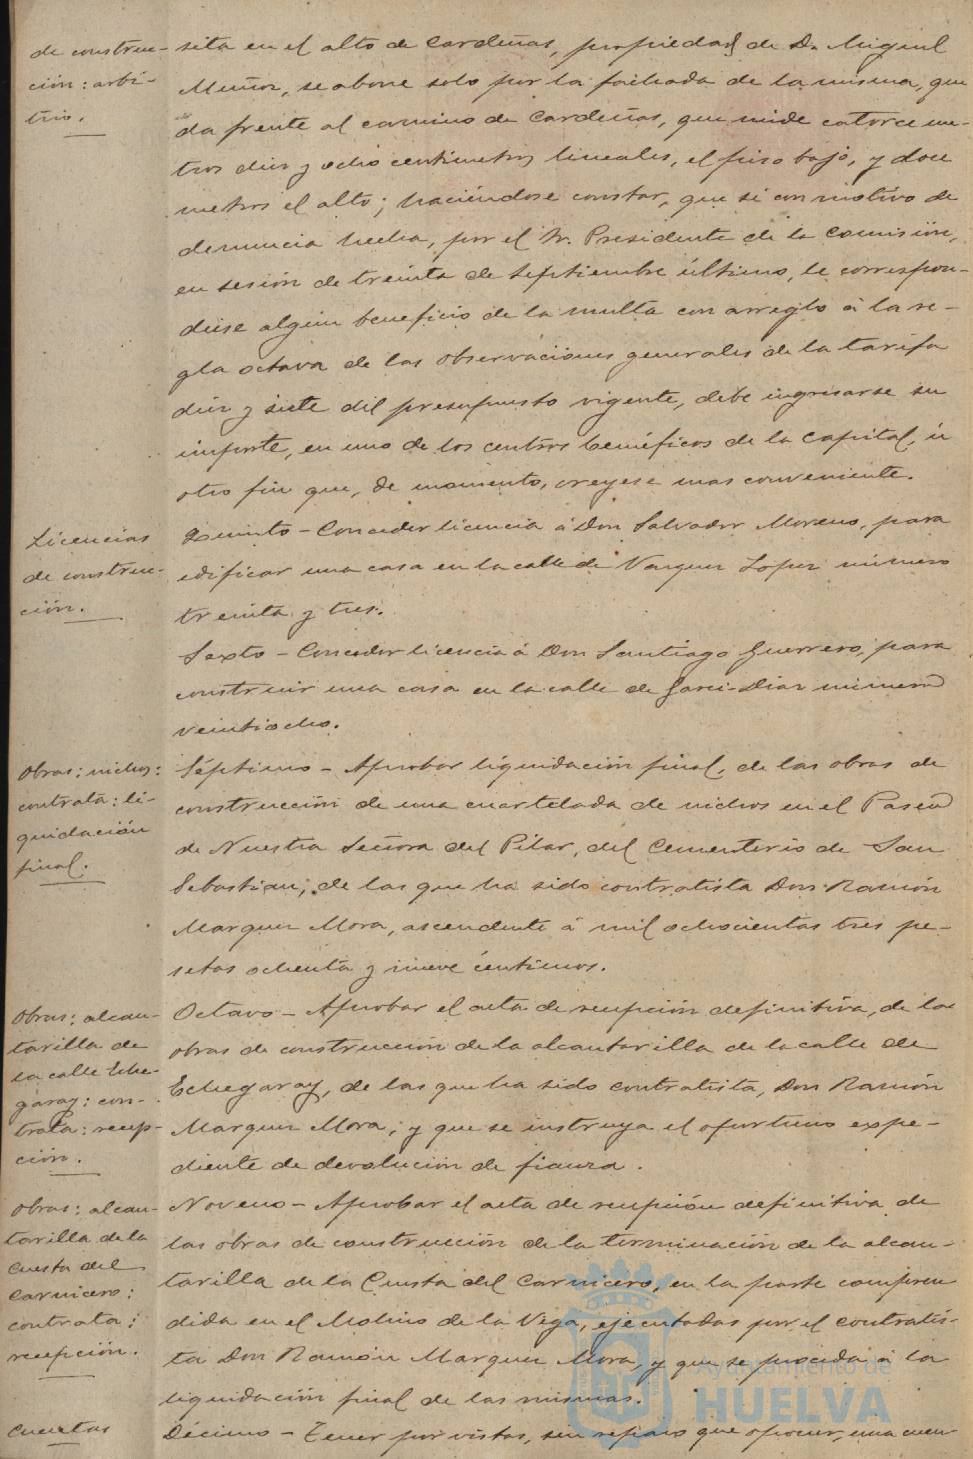 de construc-
ción: arbí-
trio.
sita en el alto de Cardeñas, propiedad de D. Miguel
Muñoz, se abone solo por la fachada de la misma, que
da frente al camino de Cardeñas, que mide catorce me-
tros diez y ocho centímetros lineales, el piso bajo, y doce
metros el alto; haciéndose constar, que si con motivo de
denuncia hecha, por el Sr. Presidente de la Comisión,
en sesión de treinta de Septiembre último, le correspon-
diese algún beneficio de la multa con arreglo á la re-
gla octava de las observaciones generales de la tarifa
diez y siete del presupuesto vigente, debe ingresarse su
importe, en uno de los centros benéficos de la Capital, ú
otro fin que, de momento, creyese mas conveniente.
Licencias
de construc-
ción.
Quinto - Conceder licencia á Don Salvador Moreno, para
edificar una casa en la calle de Vazquez Lopez número
treinta y tres.
Sexto - Conceder licencia á Don Santiago Guerrero, para
construir una casa en la calle de Garci-Diaz número
veintiocho.
Obras: nichos:
contrata: li-
quidación
final.
Séptimo - Aprobar liquidación final, de las obras de
construcción de una cuartelada de nichos en el Paseo
de Nuestra Señora del Pilar, del Cementerio de San
Sebastian, de las que ha sido contratista Don Ramón
Marquez Mora, ascendente á mil ochocientas tres pe-
setas ochenta y nueve céntimos.
Obras: alcan-
tarilla de
la calle Eche-
garay: con-
trata: recep-
ción.
Octavo - Aprobar el acta de recepción definitiva, de las
obras de construcción de la alcantarilla de la calle de
Echegaray, de las que ha sido contratista, Don Ramón
Marquez Mora; y que se instruya el oportuno expe-
diente de devolución de fianza.
Obras: alcan-
tarilla de la
Cuesta del
Carnicero:
contrata:
recepción.
Noveno - Aprobar el acta de recepción definitiva de
las obras de construcción de la terminación de la alcan-
tarilla de la Cuesta del Carnicero, en la parte compren
dida en el Molino de la Vega, ejecutadas por el contratis-
ta Don Ramón Marquez Mora, y que se proceda á la
liquidación final de las mismas.
Cuentas
Décimo - Tener por vistas, sin reparo que oponer, una cuen-
Ayuntamiento de
HUELVA